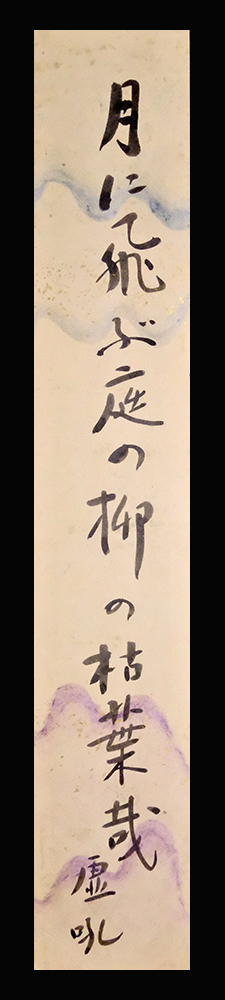 月にて飛ぶ庭の柳の枯葉哉
虚吼